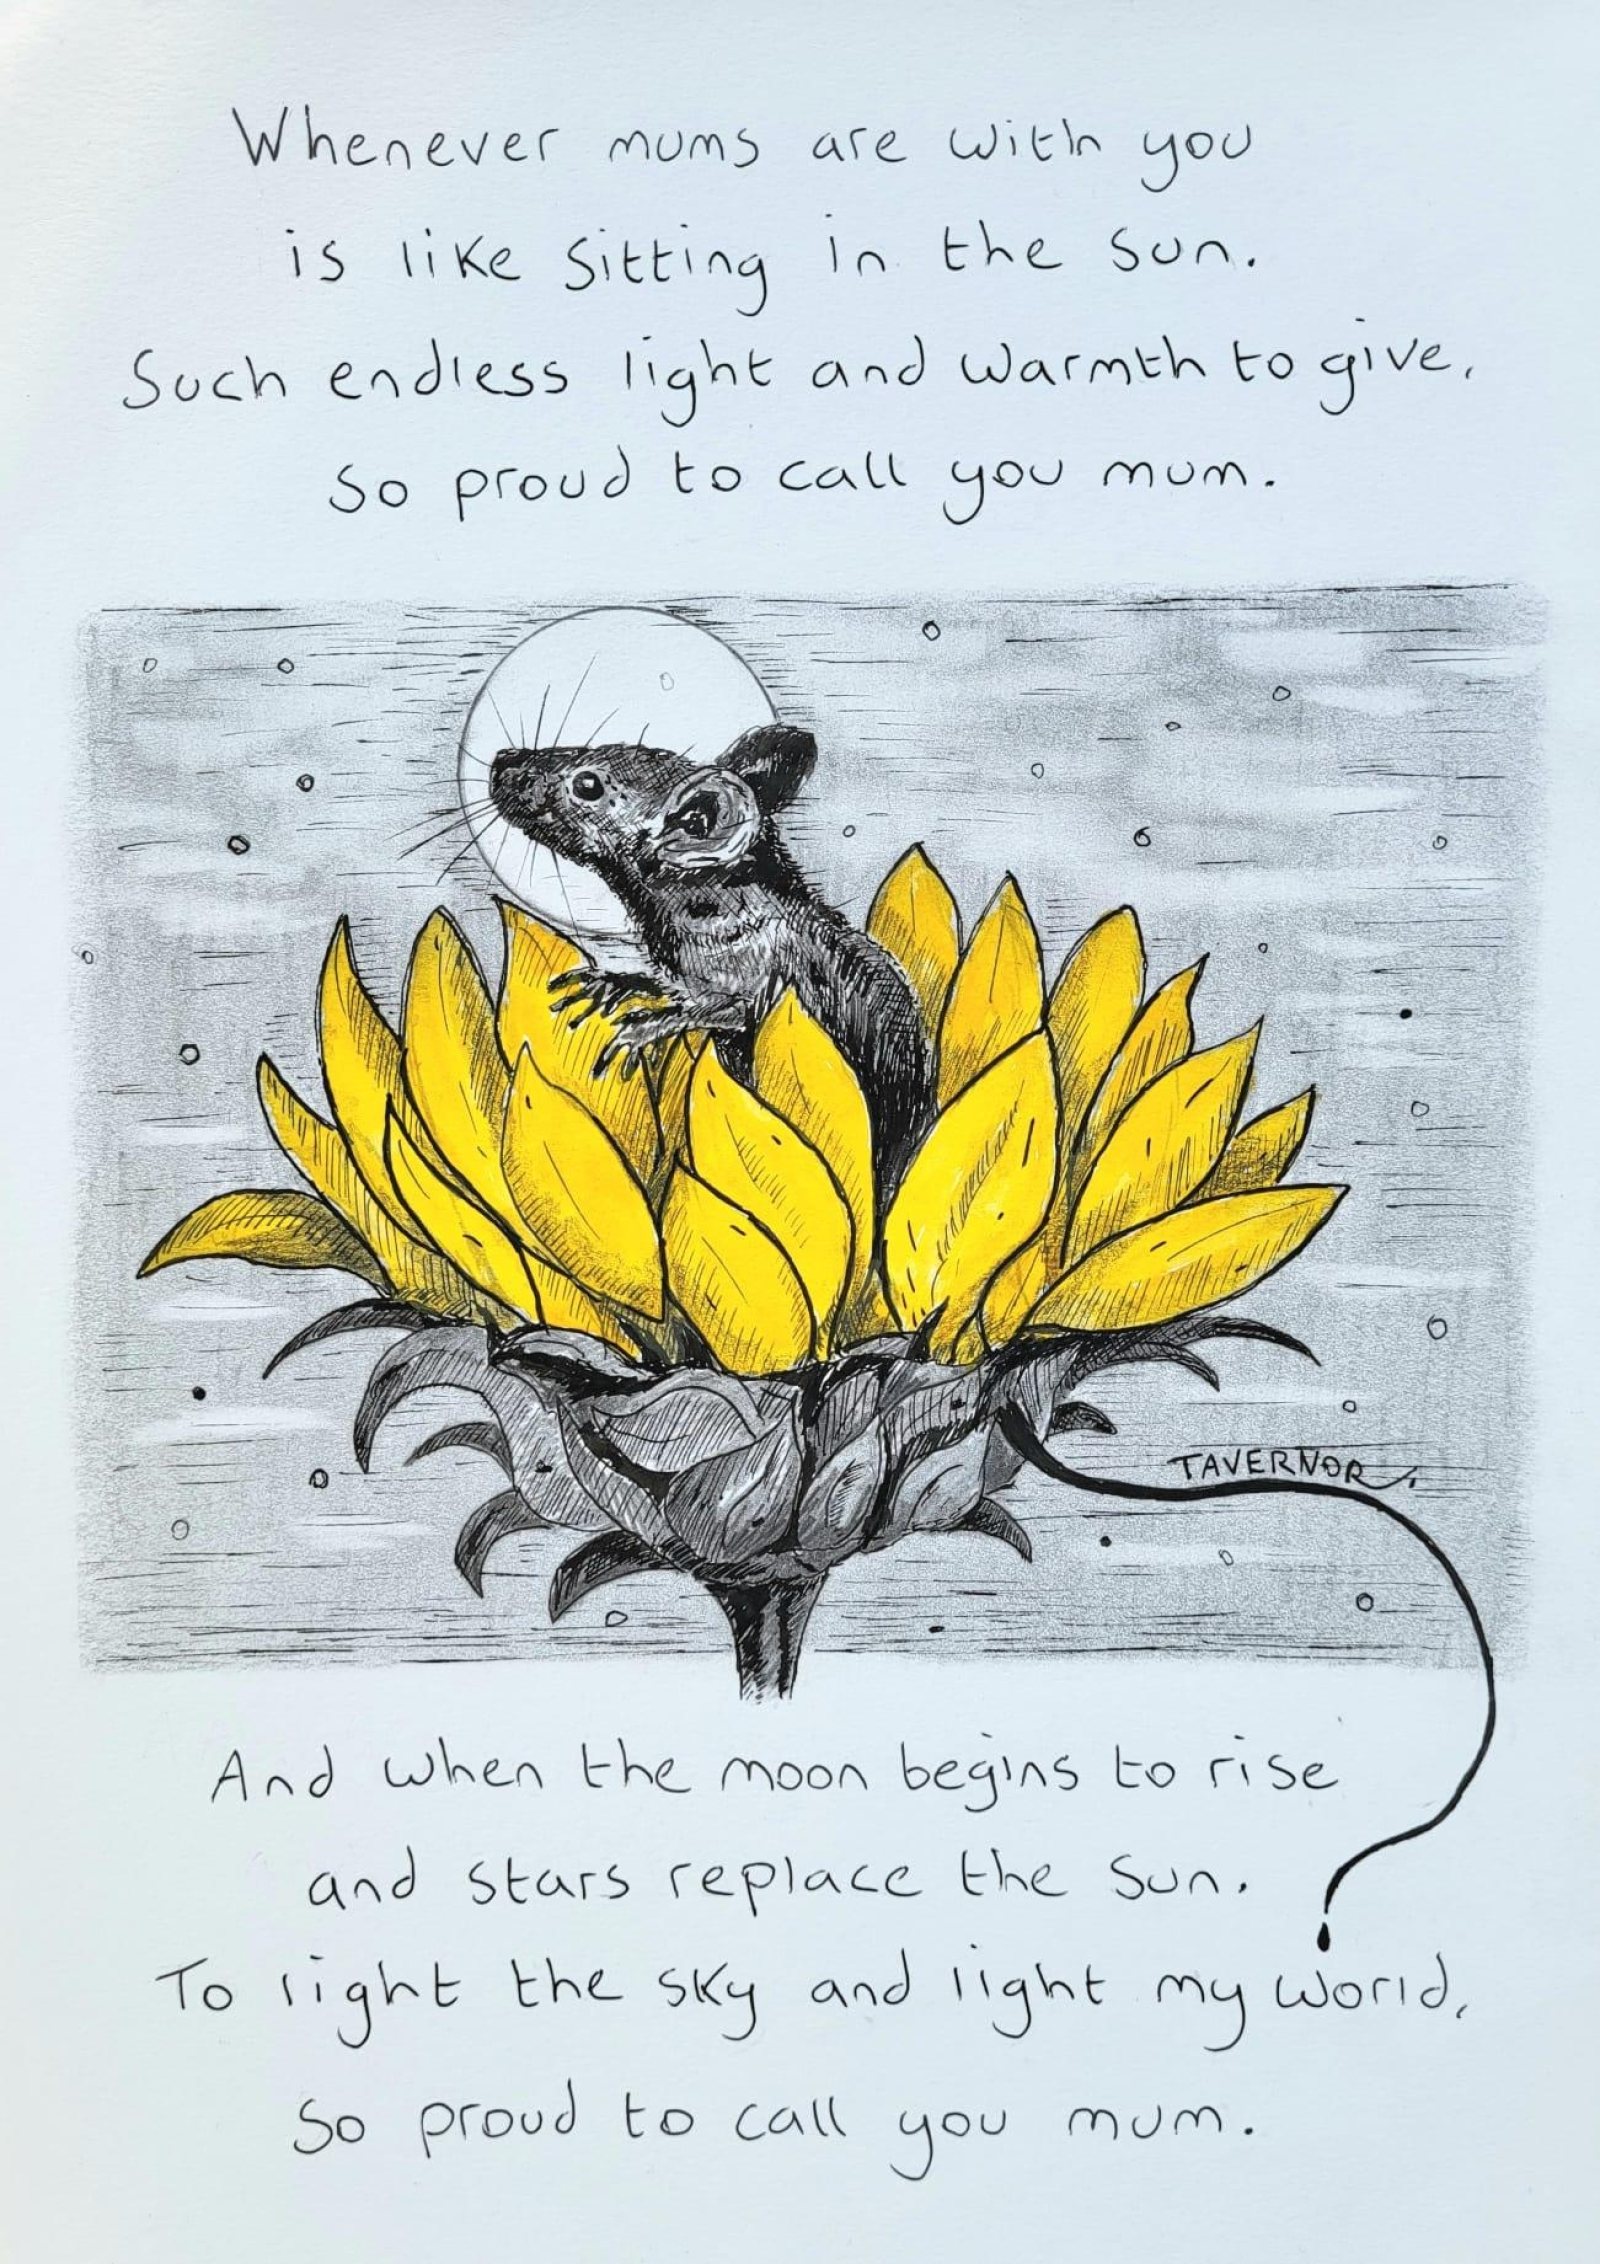 Whenever mums are with you
is like sitting in the sun.
Such endless light and warmth to give,
so proud to call you mum.
TAVERNOR
And when the moon begins to rise
and stars replace the sun.
To light the sky and light my world,
so proud to call you mum.